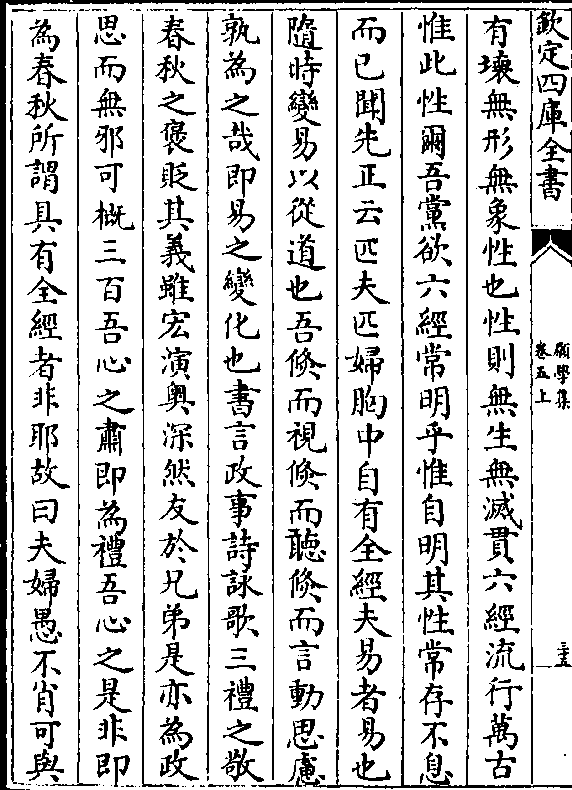 欽定四庫全書
願學集
卷五上
三五
有壞無形無象性也性則無生無滅貫六經流行萬古
惟此性爾吾黨欲六經常明乎惟自明其性常存不息
而已聞先正云匹夫匹婦胸中自有全經夫易者易也
隨時變易以從道也吾倐而視倐而聽倐而言動思慮
孰為之哉即易之變化也書言政事詩詠歌三禮之敬
春秋之褒貶其義雖宏演奧深然友於兄弟是亦為政
思而無邪可概三百吾心之肅即為禮吾心之是非即
為春秋所謂具有全經者非耶故曰夫婦愚不肖可與